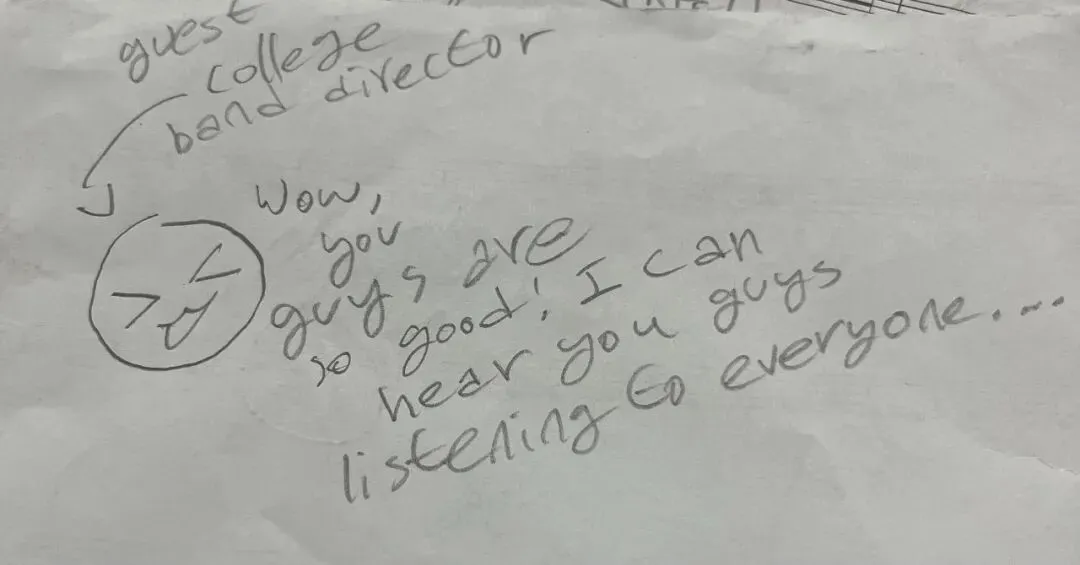 guest
college
band director
Wow,
you
guys are
so good! I can
hear you guys
listening to everyone....